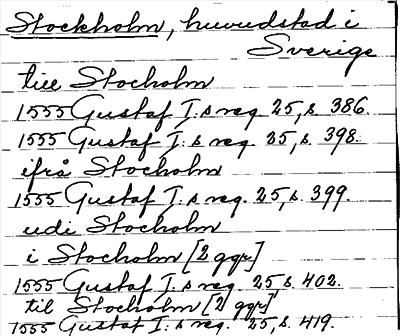 Stockholm, huvudstad i
Sverige
till Stocholm
1555 Gustaf I.s reg. 25, s. 386.
1555 Gustaf I.s reg. 25, s. 398.
ifrå Stocholm
1555 Gustaf I.s reg. 25, s. 399.
udi Stocholm
i Stocholm [2 ggr]
1555 Gustaf I.s reg. 25, s. 402.
til Stocholm [2 ggr]
1555 Gustaf I.s reg. 25, s. 419.